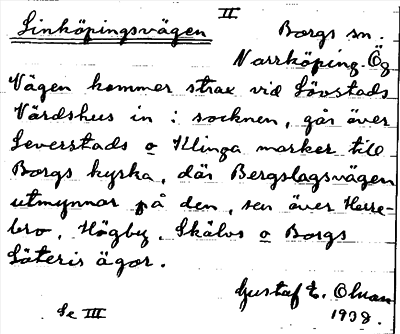 II
Linköpingsvägen Borgs sn.
Norrköping. Ög
Vägen kommer strax vid Lövstads
Värdshus in i socknen, går över
Leverstads o Klinga marker till
Borgs kyrka, där Bergslagsvägen
utmynnar på den, sen över Herre-
bro, Högby, Skälvs o Borgs
Säteris ägor.
Gustaf E. Olsson
Se III 1938.